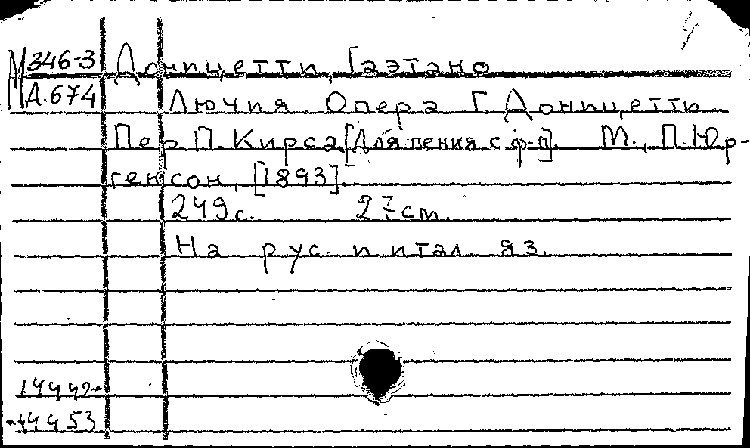 М 346-3 Доницетти, Гаэтано
Д.674 Лючия Опера Г. Доницетти
Пер. П. Кирса [Для пения с ф-п]. М., П. Юр-
генсон, [1893].
249 с. 27 cm.
На рус. и итал. яз.